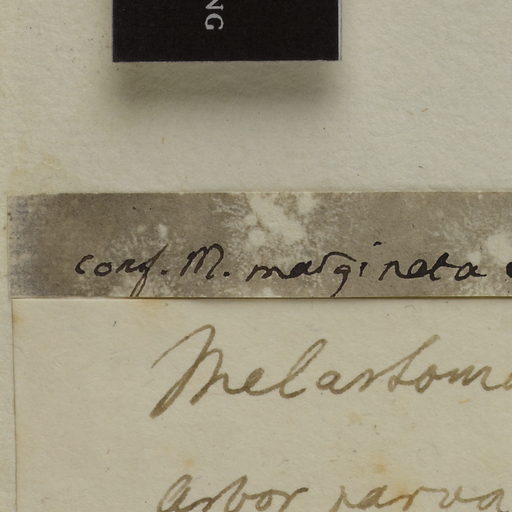 NG
conf. M. margineta
Melastoma
Arbor parva